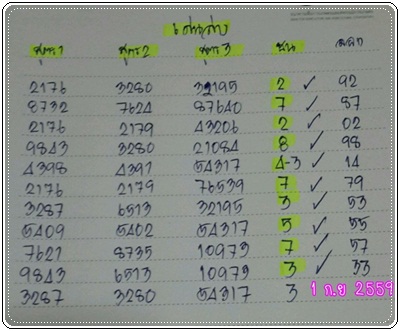 เด่นล่าง
สูตร 1 สูตร 2 สูตร 3 ชน ผลออก
2176 3280 32195 2 ✓ 92
8732 7624 87640 7 ✓ 87
2176 2179 43206 2 ✓ 02
9843 3280 21084 8 ✓ 98
4398 4391 54317 4-3 ✓ 14
2176 2179 76539 7 ✓ 79
3287 6513 32195 3 ✓ 53
5409 5402 54317 5 ✓ 55
7621 8735 10973 7 ✓ 57
9843 6513 10973 3 ✓ 33
3287 3280 54317 3 1 ก.ย 2559